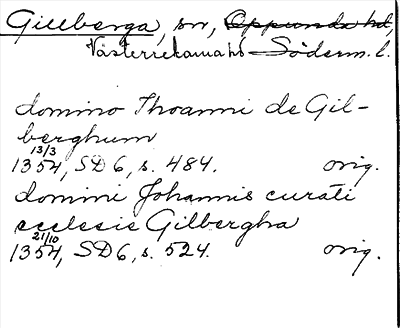 Gillberga, sn, Oppunda hd,
Västerrekarna hd Söderm. l.
domino Thoanni de Gil-
berghum
13/3
1354, SD6, s. 484. orig.
domini Johannis curati
ecclesie Gilbergha
21/10
1354, SD6, s. 524. orig.